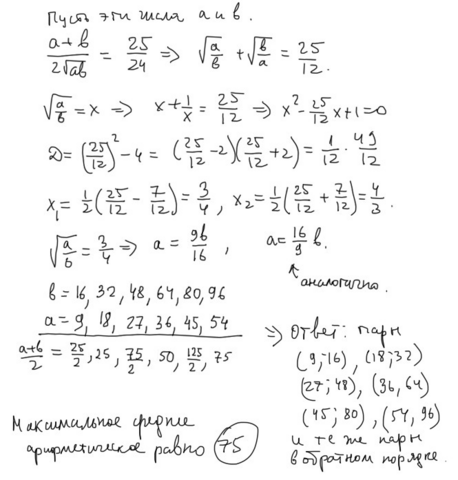 Пусть эти числа a и b.
(a+b)/(2√ab) = 25/24 ⟹ √(a/b) + √(b/a) = 25/12.
√(a/b) = x ⟹ x + 1/x = 25/12 ⟹ x² - 25/12 x + 1 = 0
D = (25/12)² - 4 = (25/12 - 2)(25/12 + 2) = 1/12 · 49/12
x₁ = 1/2(25/12 - 7/12) = 3/4, x₂ = 1/2(25/12 + 7/12) = 4/3.
√(a/b) = 3/4 ⟹ a = 9b/16, a = 16/9 b.
↑
аналогично.
b = 16, 32, 48, 64, 80, 96
a = 9, 18, 27, 36, 45, 54
(a+b)/2 = 25/2, 25, 75/2, 50, 125/2, 75
⟹ Ответ: пары
(9; 16), (18; 32)
(27; 48), (36, 64)
(45; 80), (54, 96)
и те же пары
в обратном порядке.
Максимальное среднее
арифметическое равно 75